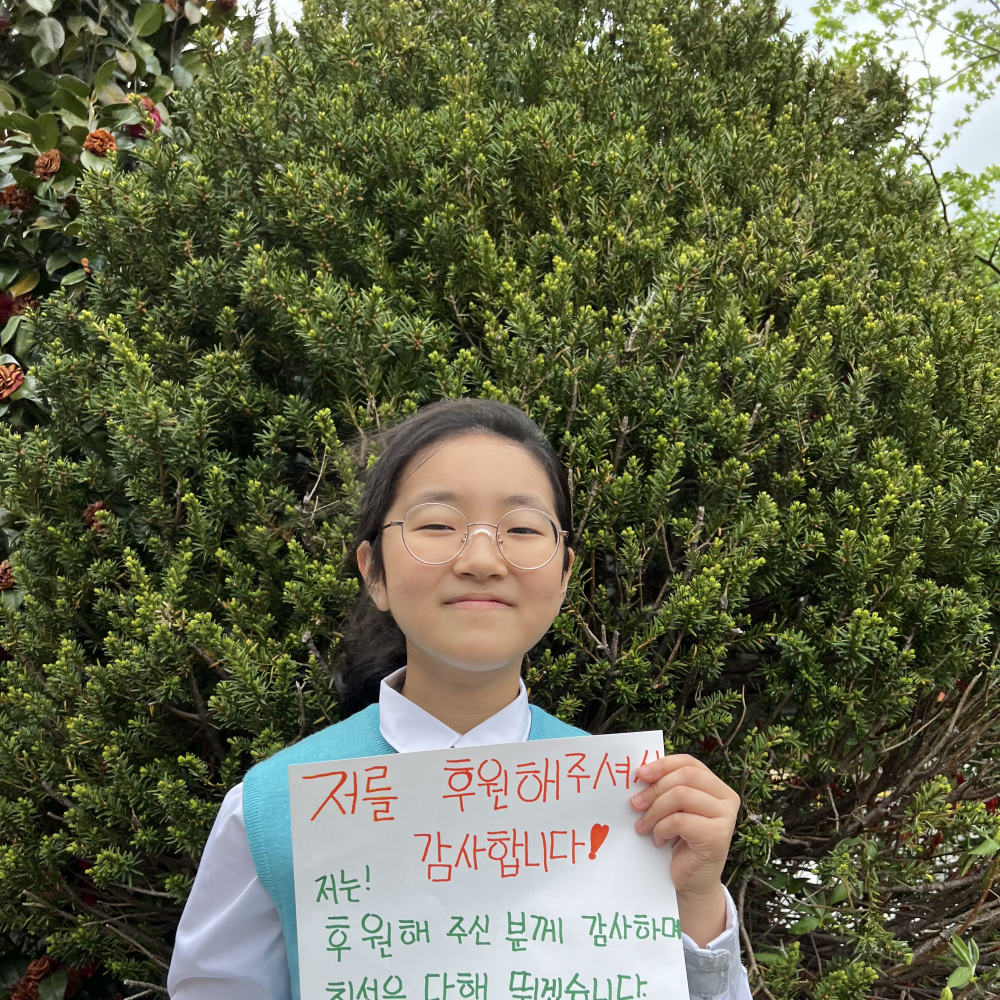 저를 후원해주셔서
감사합니다!
저는!
후원해 주신 분께 감사하며
최선을 다해 뛰겠습니다.